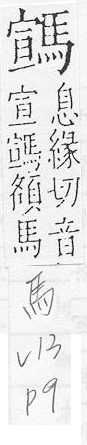 息緣切音
宣額馬
馬
V13
p9